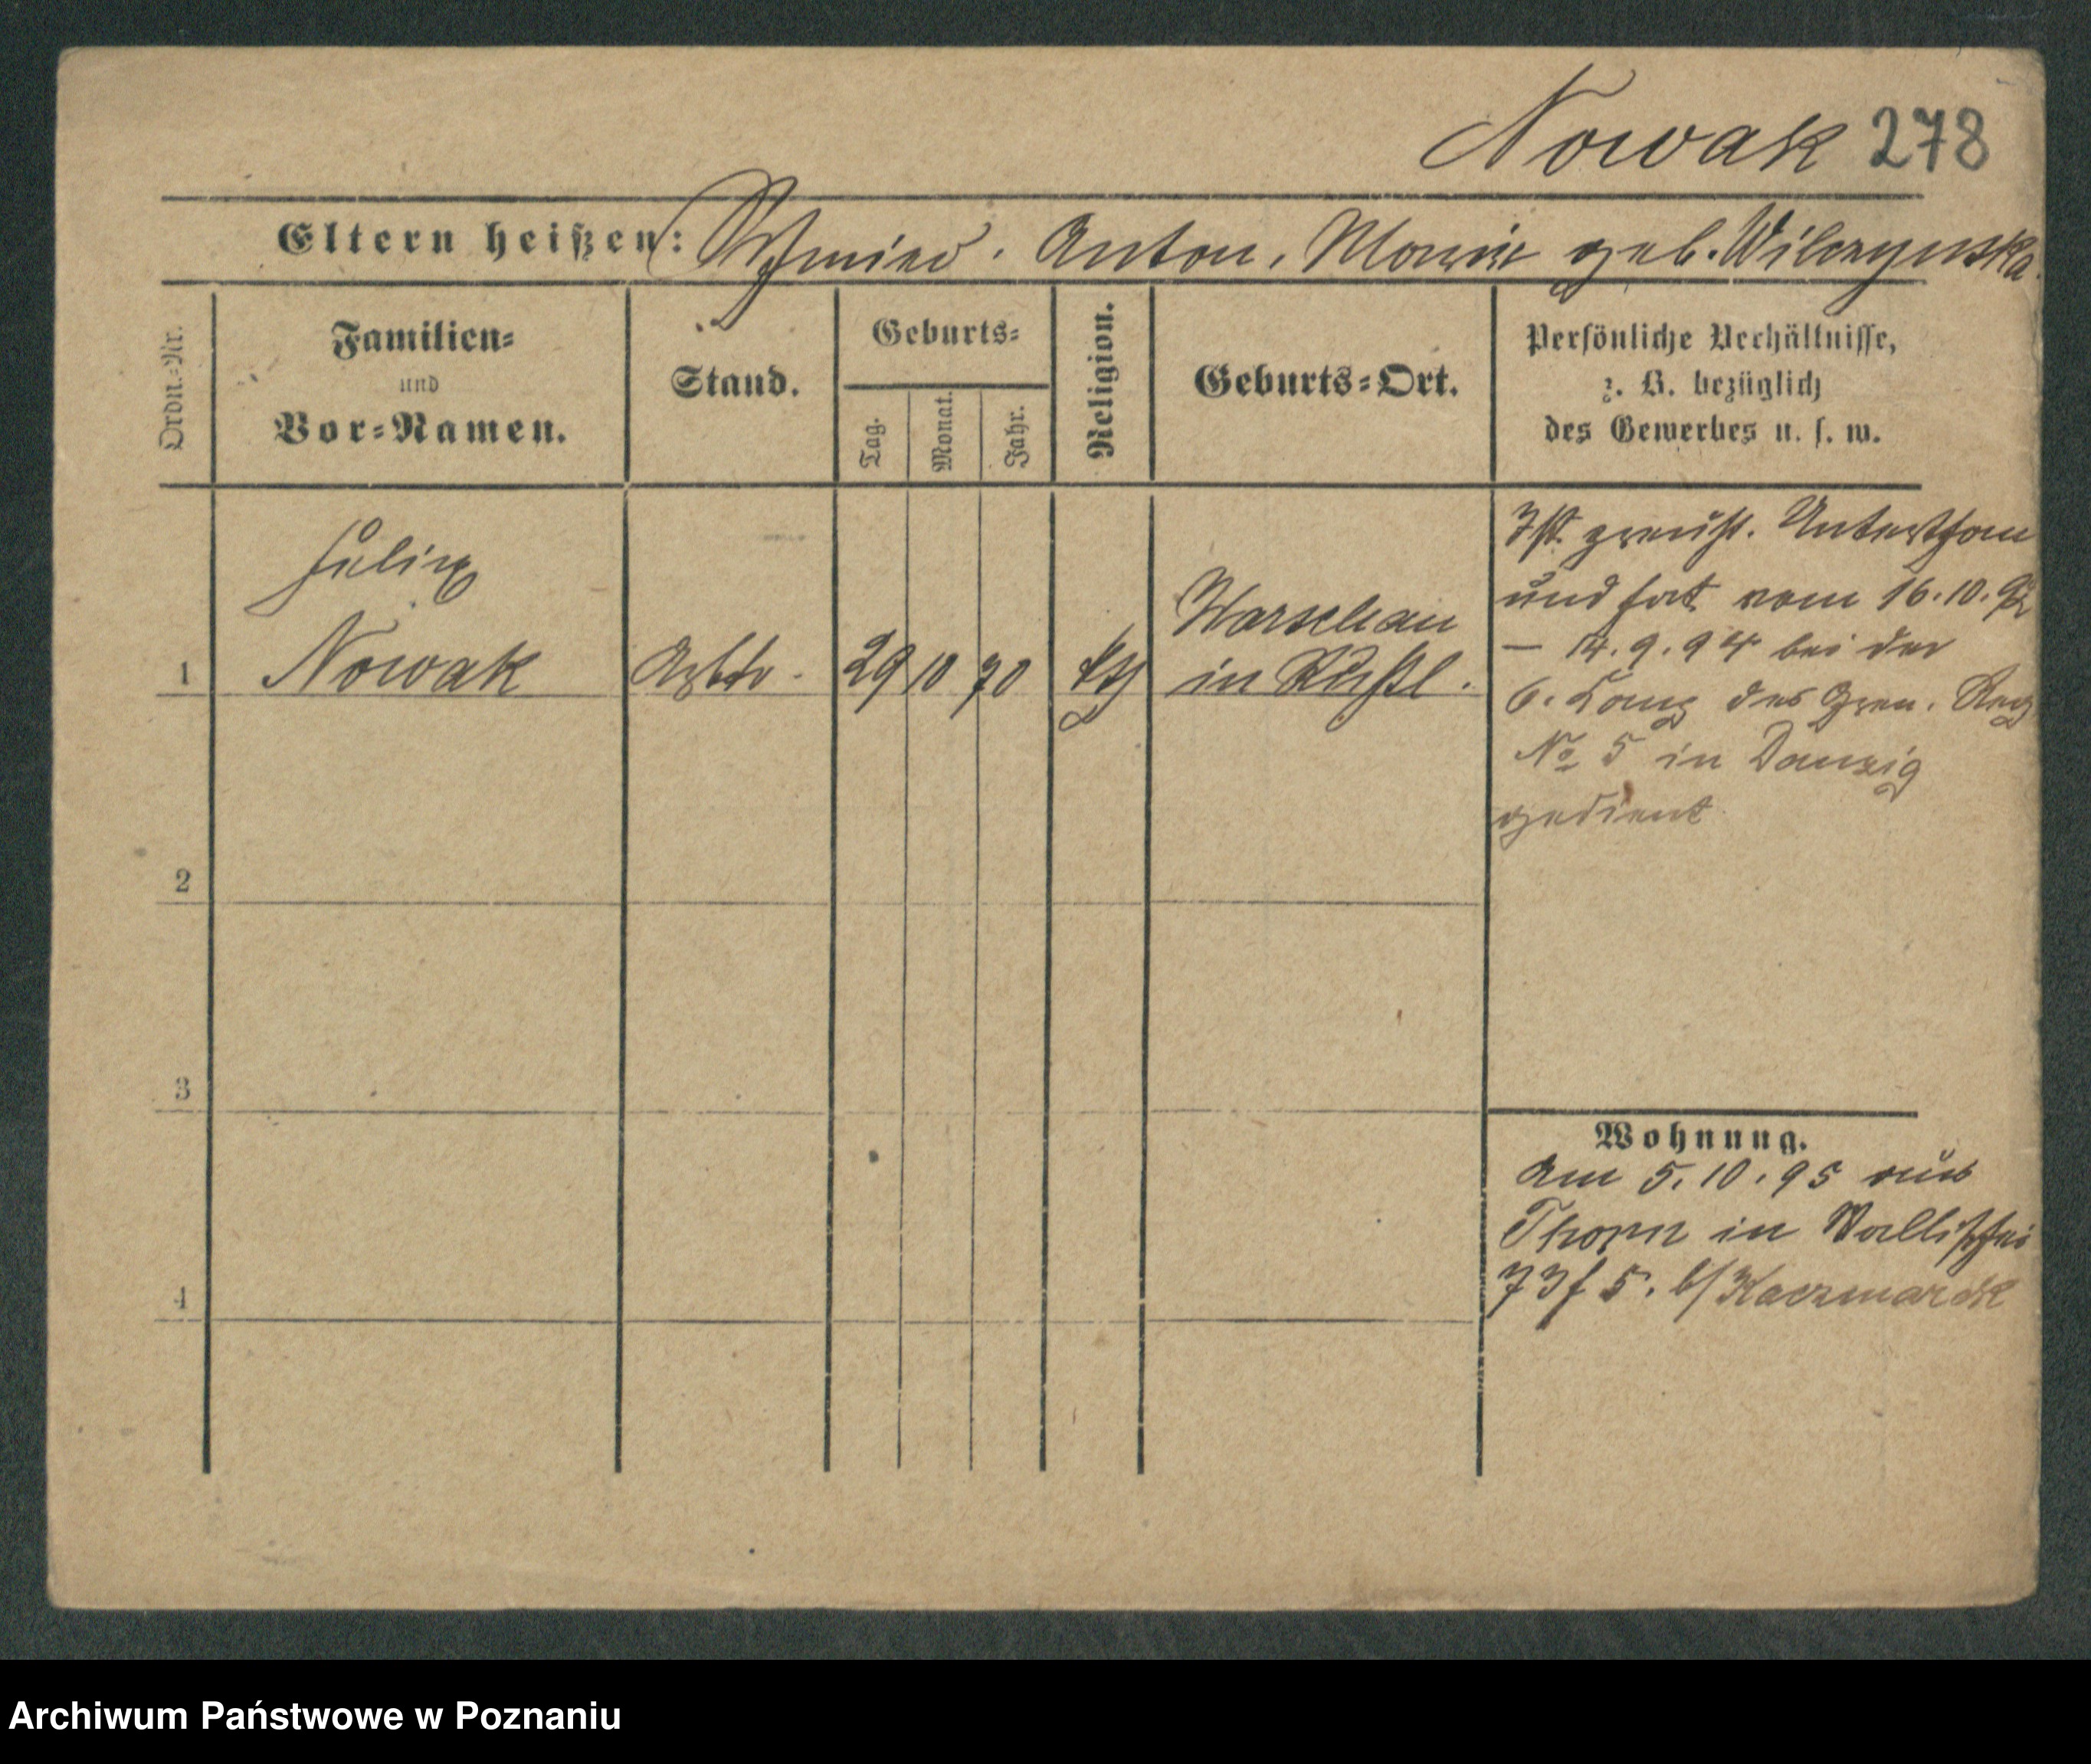 Nowak 278
Eltern heißen: Schmied. Anton, Marie geb. Wilczynska
Ordn.-Nr.
Familien-
und
Vor-Namen.
Stand.
Geburts-
Tag.
Monat.
Jahr.
Religion.
Geburts-Ort.
Persönliche Verhältnisse,
z. B. bezüglich
des Gewerbes u. s. w.
1
Julius
Nowak
Arbtr.
29
10
70
kth
Warschau
in Rußl.
Ist preuß. Unterthan
und hat vom 16.10.92
— 14.9.94 bei der
6. Comp des Gren. Reg
No 5 in Danzig
gedient
2
3
4
Wohnung.
Am 5.10.95 aus
Thorn in Wallischei
73 5. b/ Kaczmarek
Archiwum Państwowe w Poznaniu